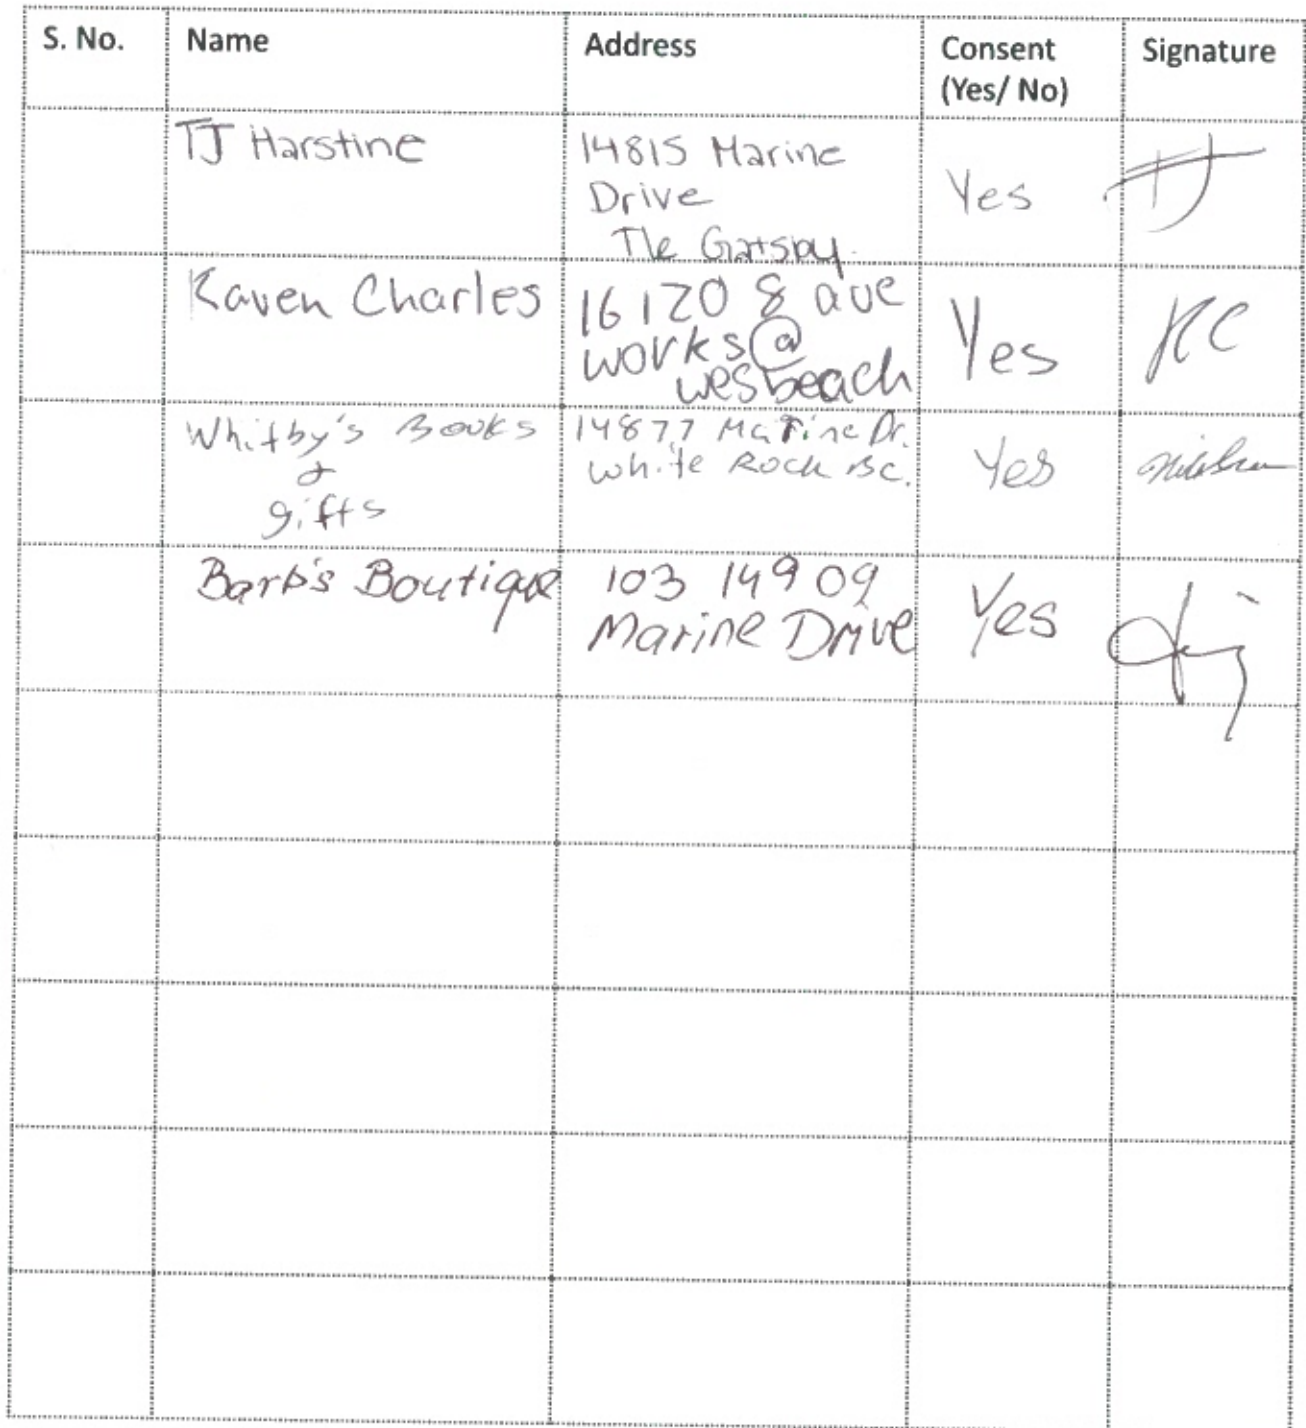 S. No. Name Address Consent (Yes/ No) Signature
TJ Harstine 14815 Marine
Drive
The Gatsby. Yes TJ
Raven Charles 16120 8 ave
works@
wesbeach Yes RC
Whitby's Books
&
gifts 14877 Marine Dr.
White Rock BC. Yes
Barb's Boutique 103 14909
Marine Drive Yes